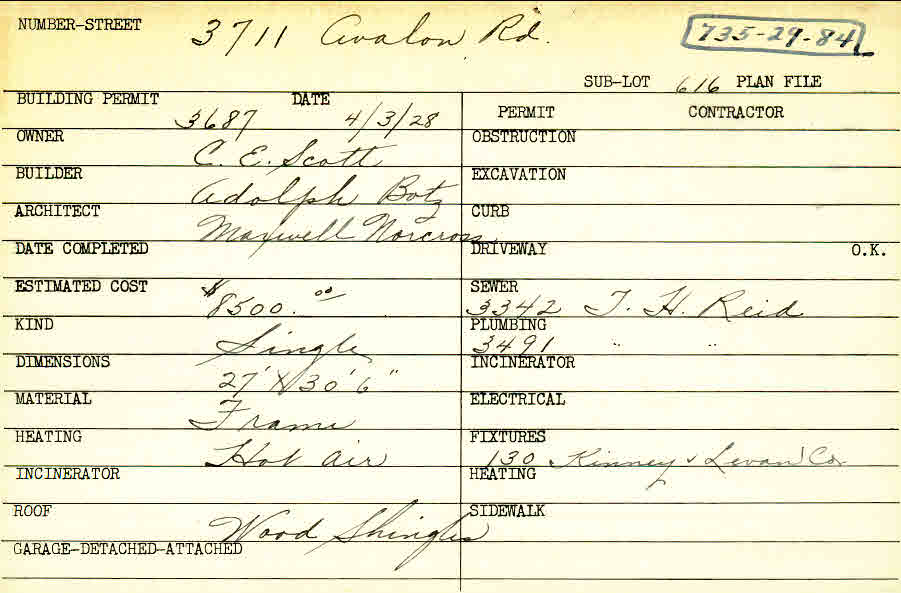 NUMBER-STREET 3711 Avalon Rd. 735-29-84
SUB-LOT 616 PLAN FILE
BUILDING PERMIT 3687 DATE 4/3/28
PERMIT CONTRACTOR
OWNER C. E. Scott
OBSTRUCTION
BUILDER Adolph Botz
EXCAVATION
ARCHITECT Maxwell Norcross
CURB
DATE COMPLETED
DRIVEWAY O.K.
ESTIMATED COST $8500.00
SEWER 3342 T. H. Reid
KIND Single
PLUMBING 3491 " "
DIMENSIONS 27' X 30' 6"
INCINERATOR
MATERIAL Frame
ELECTRICAL
HEATING Hot air
FIXTURES 130 Kinney & Levan Co
INCINERATOR
HEATING
ROOF Wood Shingles
SIDEWALK
GARAGE-DETACHED-ATTACHED